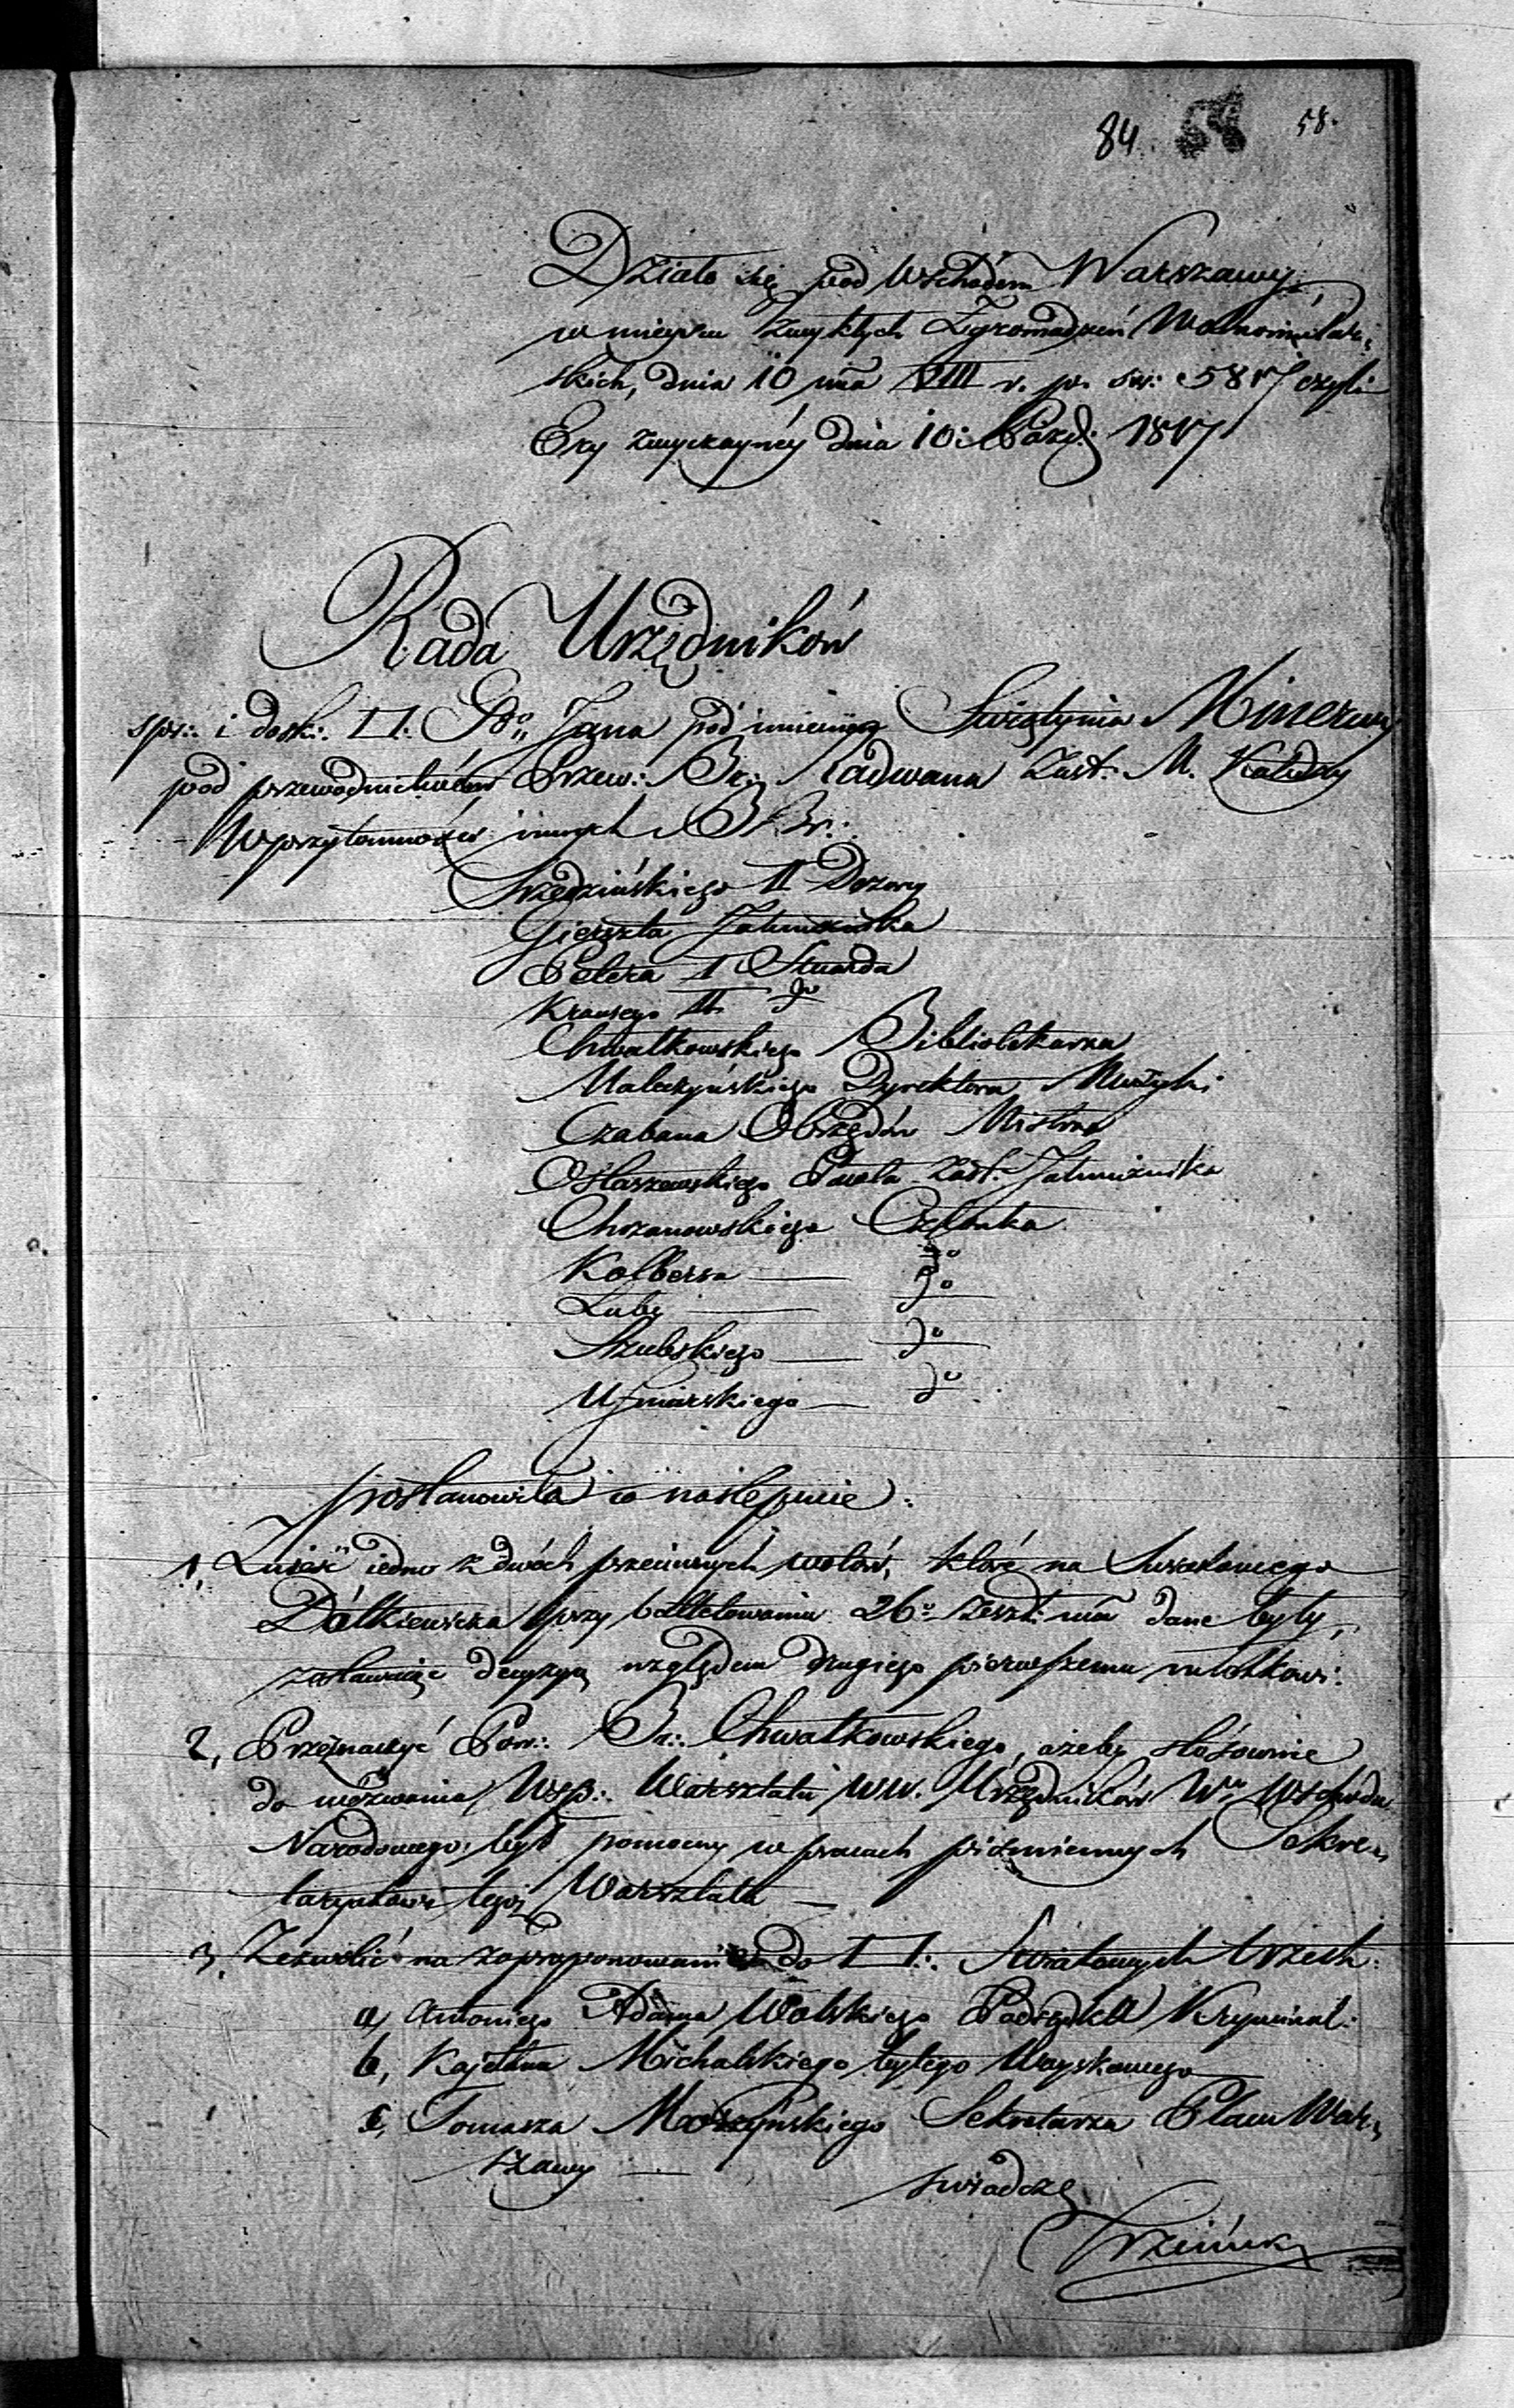 84. 58.
Działo się pod Wschodem Warszawy,
w mieyscu zwykłych Zgromadzeń Wolnomular„
skich, dnia 10 mca VIII r. p. sw: 5817 czyli
Ery zwyczayney dnia 10: Paźd: 1817
Rada Urzędników
spr:. i dosk:. □:. Sgo„ Jana pod imieniem Swiątynia Minerwy
pod przewodnictwem Przew:. Br:. Radwana Zast:. M. Katedry
W przytomności innych BBr:.
Srzedzińskiego II Dozorcy
Gierszta Jałmużnika
Petera I Stuarda
Krausego II do
Chwatkowskiego Bibliotekarza
Maleczyńskiego Dyrektora Muzyki
Czabana Obrzędów Mistrza
Ostaszewskiego Pawła Zast. Jałmużnika
Chrzanowskiego Członka
Kolberga — do
Luby — do
Szubskiego — do
Uzniarskiego — do
postanowiła co nastepuie:
1, Znieść iedno z dwóch przeciwnych wotów, które na Swiatowego
Dółkiewicza przy balletowaniu 26o zeszł: mca dane były,
zostawuiąc decyzyą względem drugiego pierwszemu młotkowi:
2, Przeznaczyć Pow:. Br:. Chwatkowskiego, ażeby stósownie
do wezwania Wsp:. Warsztatu WW. Urzędników Wgo Wschodu
Narodowego był pomocny w pracach piśmiennych Sekre„
taryatowi tegoż Warsztatu —
3, Zezwolić na zaproponowanie do □:. Swiatowych trzech:
a, Antoniego Adama Wolskiego Podsędka Kryminal:
b, Kajetana Michalskiego byłego Woyskowego
c, Tomasza Morzyńskiego Sekretarza Placu War„
szawy —
swiadczę